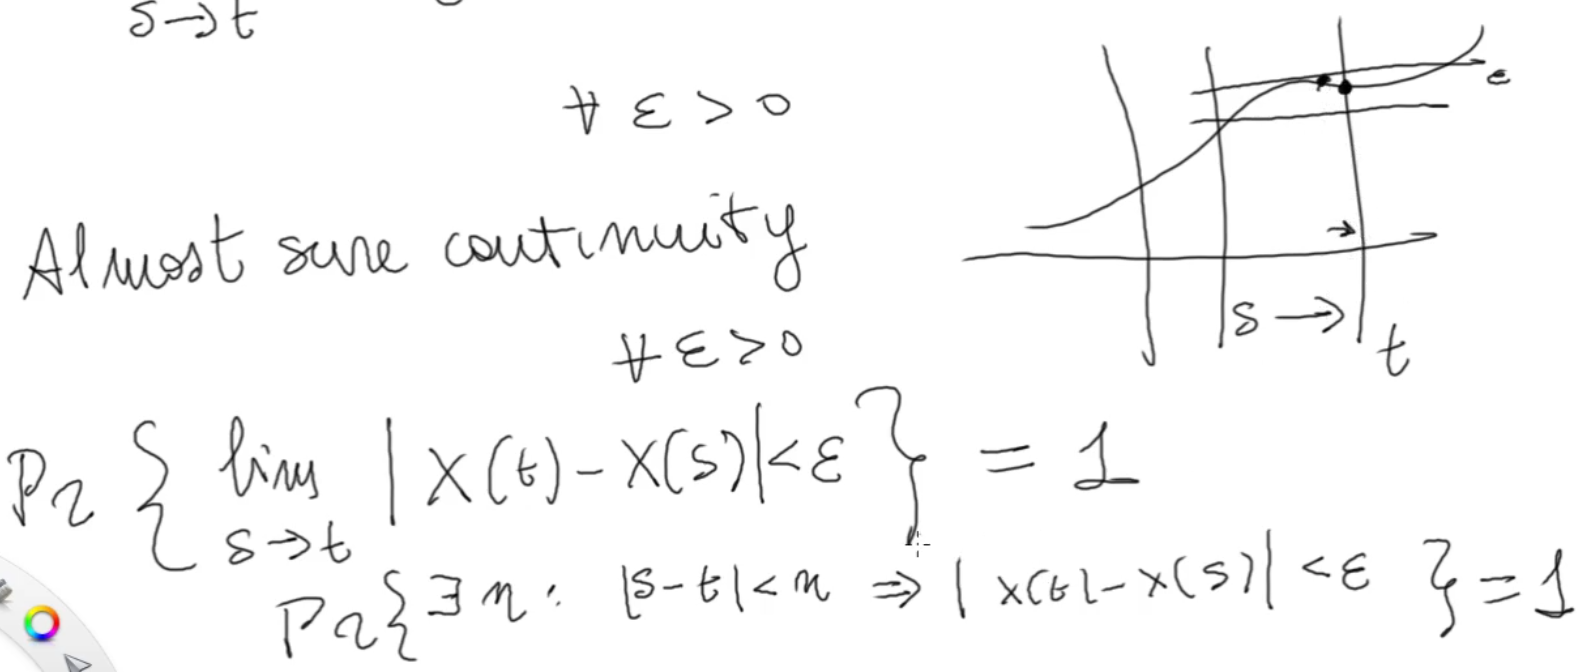 s→t
∀ ε > 0
ε
Almost sure continuity
∀ ε > 0
s → t
Pr { lim | X(t) - X(s) | < ε } = 1
s→t
Pr { ∃ η : |s-t| < η ⇒ | X(t) - X(s) | < ε } = 1